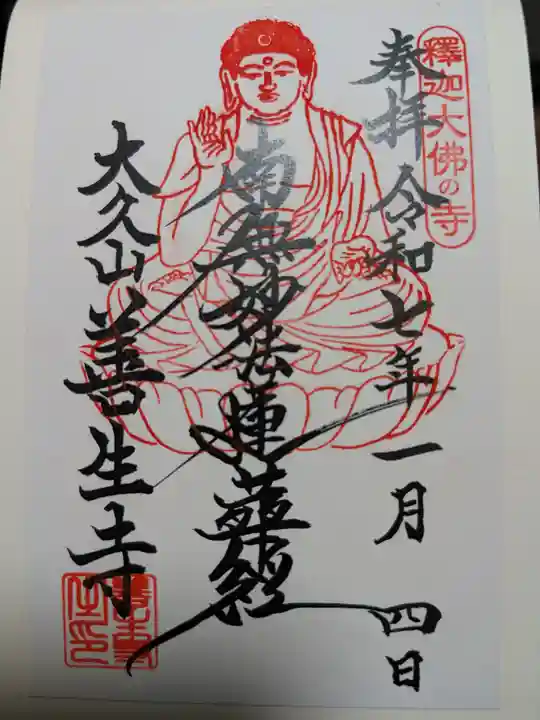 釋迦大佛の寺
奉拝 令和七年 一月 四日
南無妙法蓮華經
大久山 善生寺